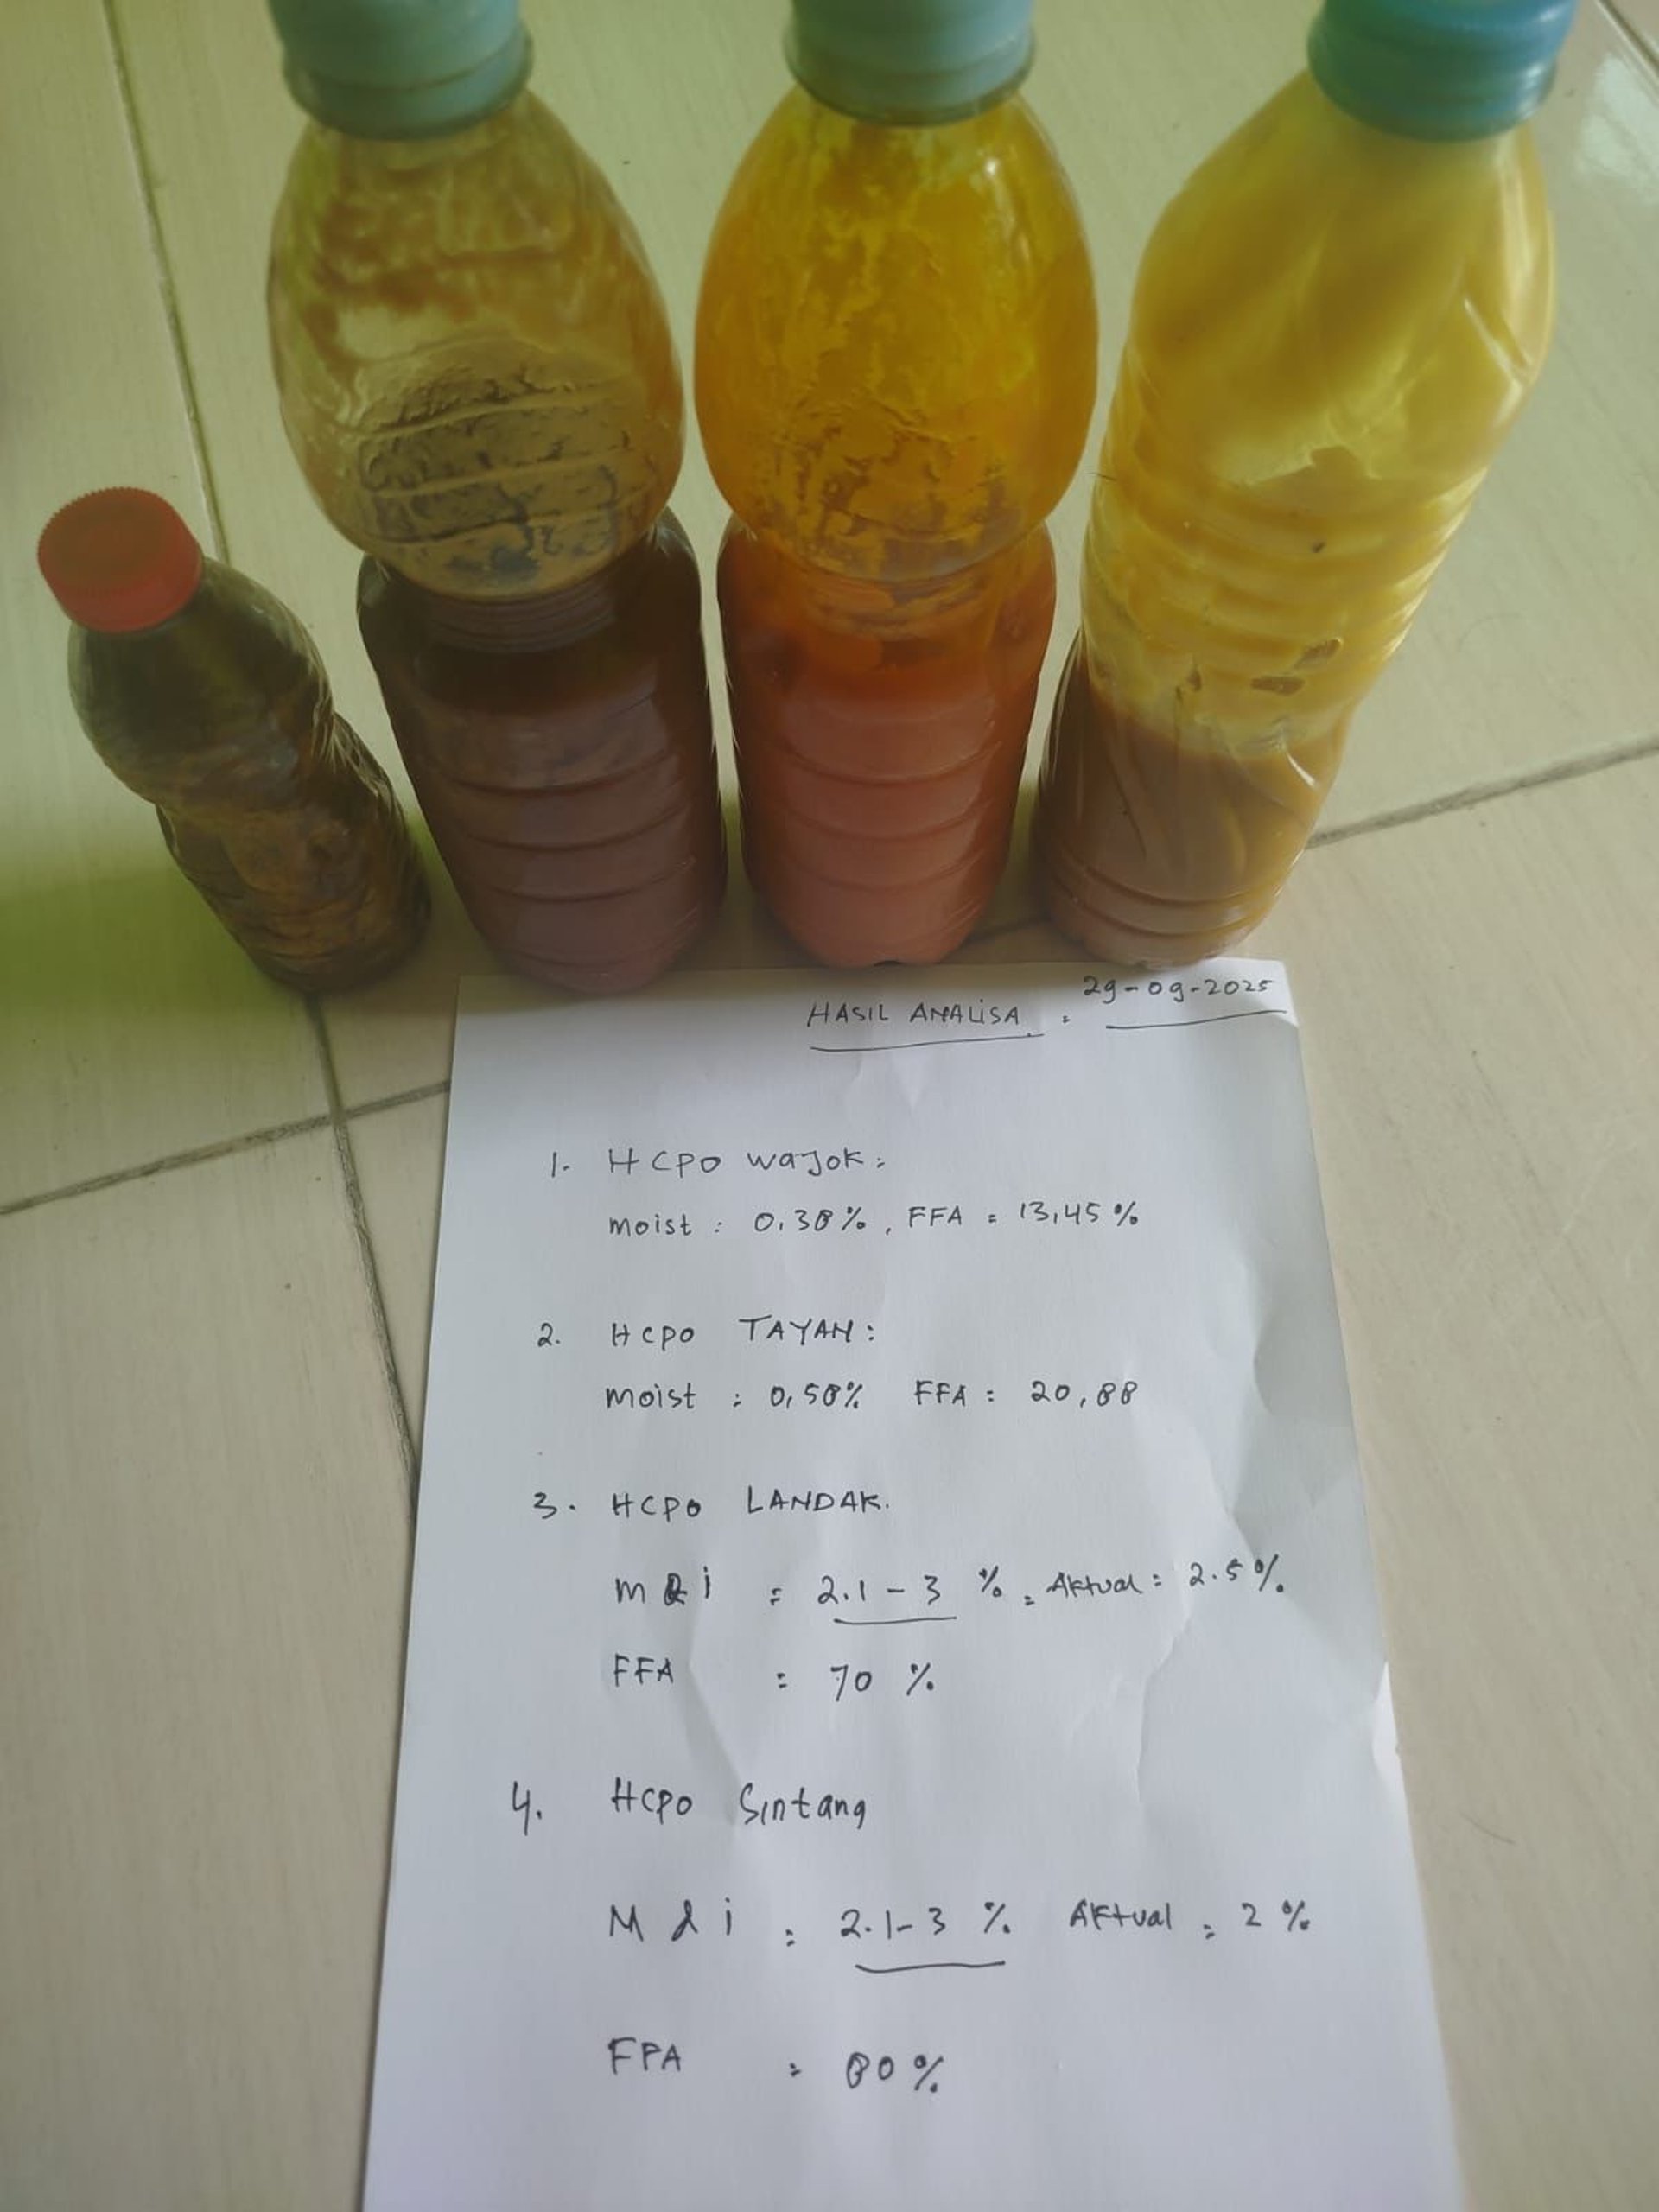 HASIL ANALISA : 29-09-2025
1. HCPO WAJOK :
moist : 0,38%, FFA = 13,45%
2. HCPO TAYAN :
moist : 0,58% FFA : 20,88
3. HCPO LANDAK.
M & i : 2.1 - 3 %. Aktual = 2.5%
FFA : 70 %
4. HCPO Sintang
M & i : 2.1-3 % Aktual : 2 %
FFA : 80%